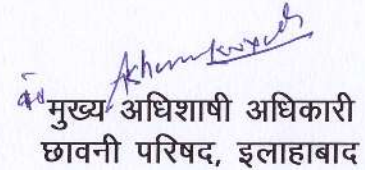 मुख्य अधिशाषी अधिकारी
छावनी परिषद, इलाहाबाद